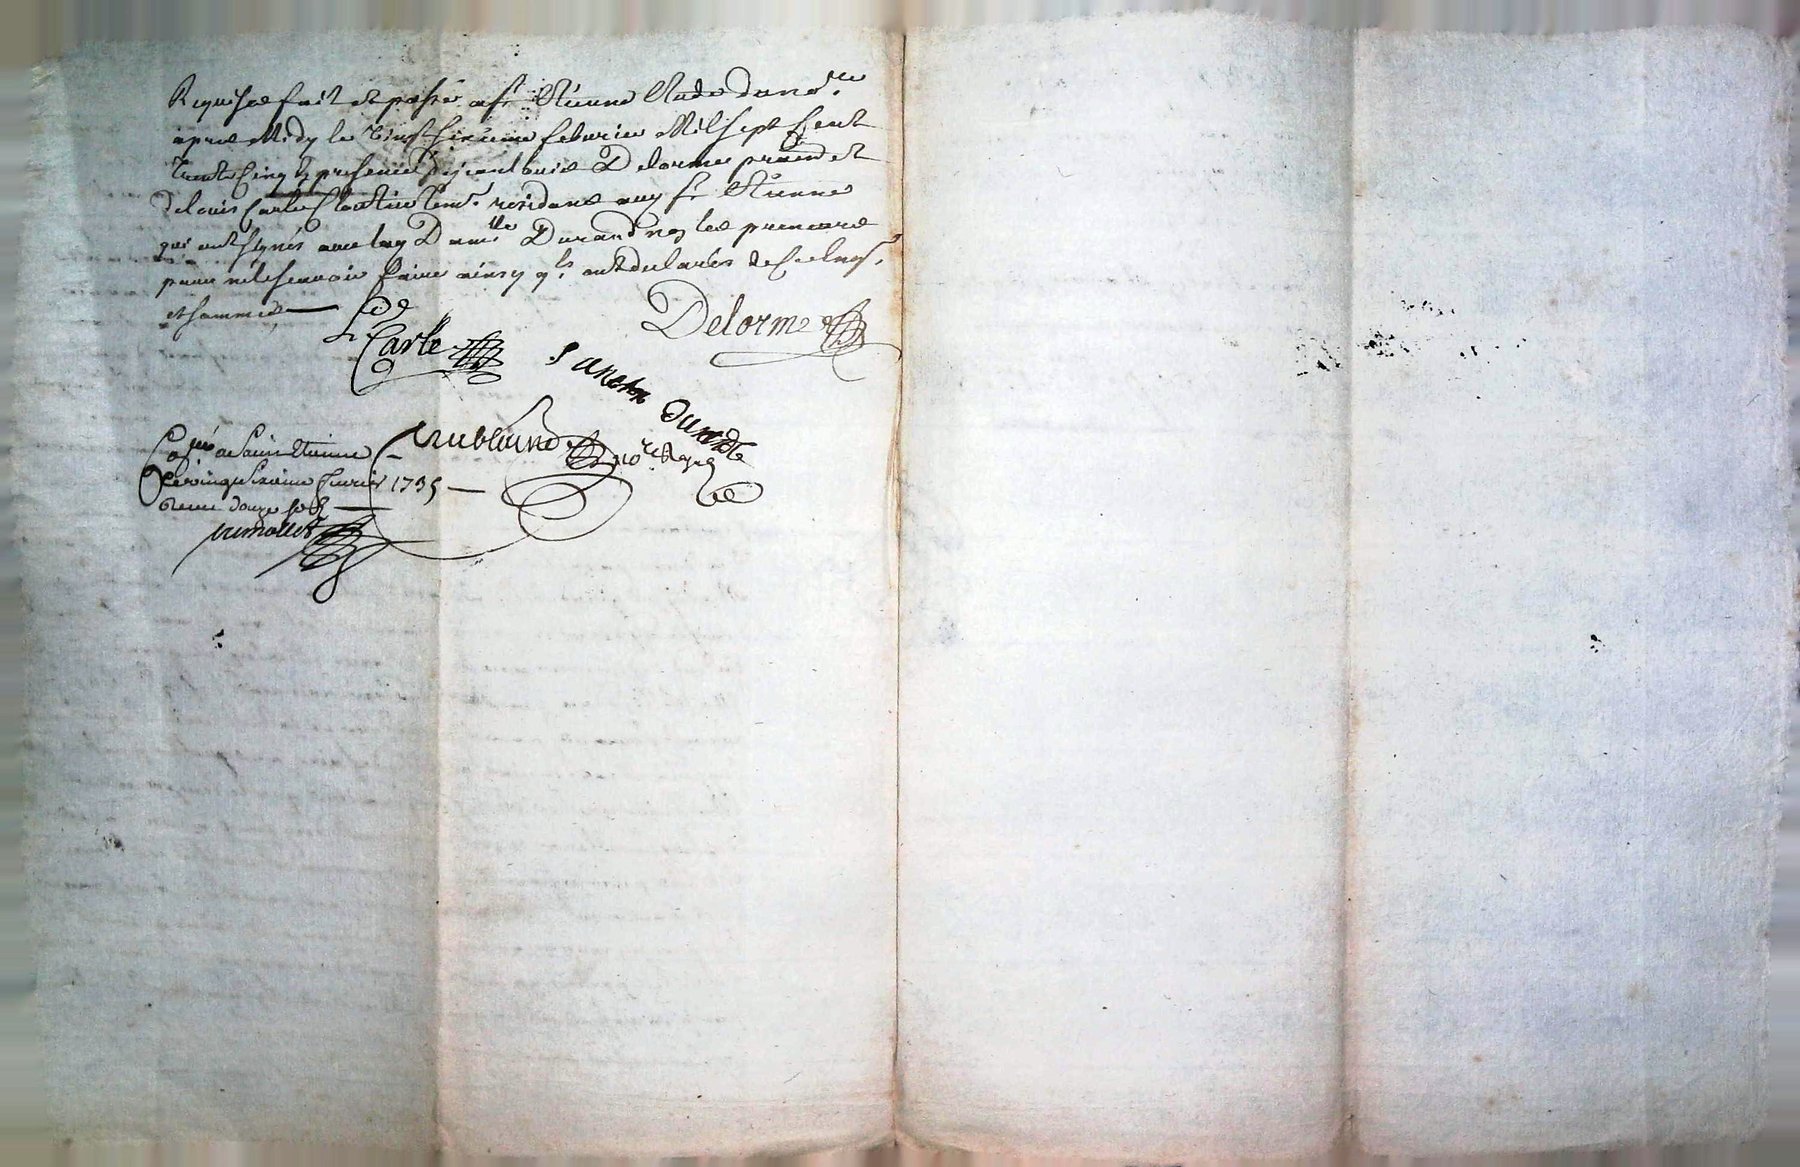 Requise fait et passé a St Etienne Etude du no.re
apres Midy le vingt sixieme febvrier Mil sept Cent
trente Cinq presence de Louis Delorme praad et
de Louis Carle Cloutier tem. residans audit St Etienne
qui ont signés avec lad. Dam.lle Durand non les preneurs
pour ne le scavoir faire ainsy qls ont declarés de ce enq.
et sommés
Delorme
L Carle
Sancton durand
nore Royal
Coll.é a Saint Etienne
le vingt sixieme fevrier 1735
Receu douze sols